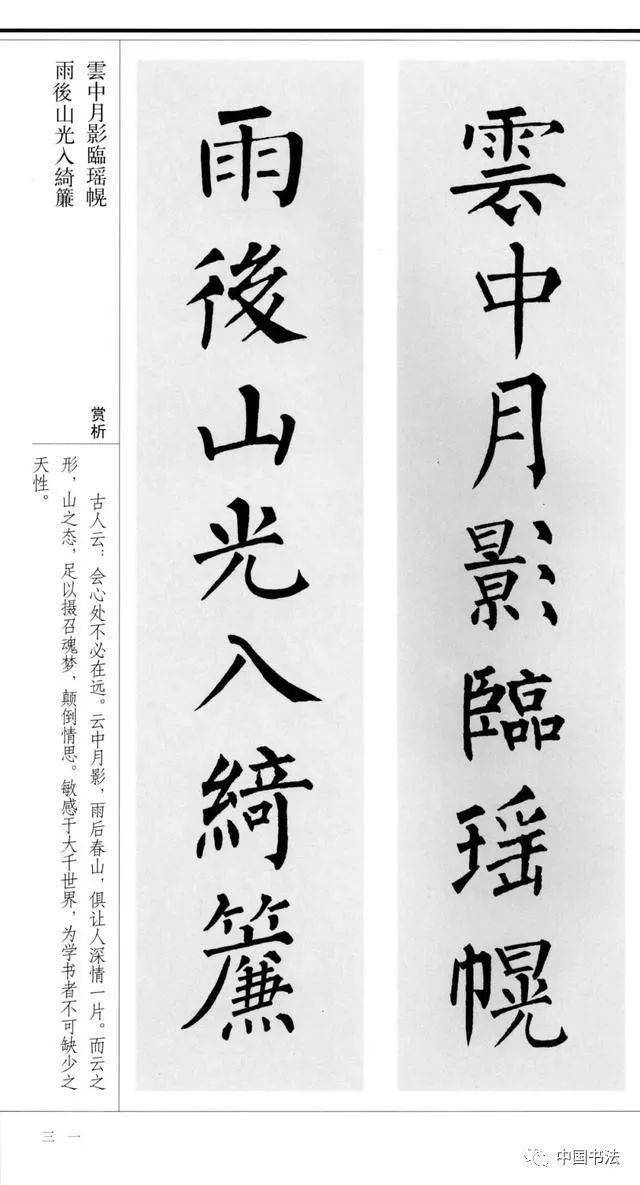 雲中月影臨瑶幌
雨後山光入綺簾
雲中月影臨瑶幌
雨後山光入綺簾
赏析
古人云：会心处不必在远。云中月影，雨后春山，俱让人深情一片。而云之
形，山之态，足以摄召魂梦，颠倒情思。敏感于大千世界，为学书者不可缺少之
天性。
三一
中国书法